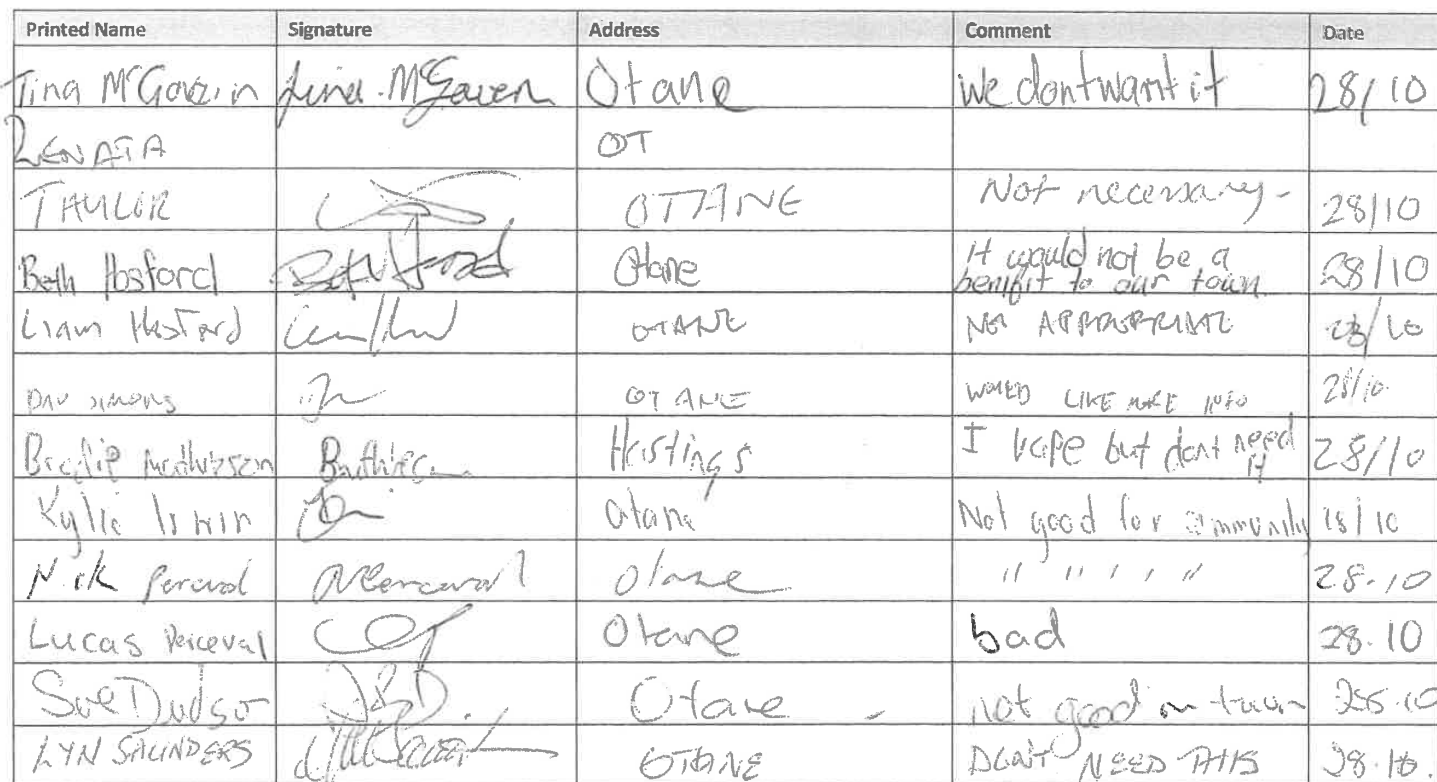 Printed Name Signature Address Comment Date
Tina McGavin Tina McGaven Otane we dont want it 28/10
RENATA OT
TAYLOR OTTANE Not necessary - 28/10
Beth Hosford Otane It would not be a
benifit to our town 28/10
Liam Hosford OTANE NOT APPROPRIATE 28/10
DAV SIMONS OTANE WOULD LIKE MORE INFO 28/10
Hastings I vape but dont need
it 28/10
Kylie Irwin Otane Not good for community 28/10
Nick Perceval NPerceval Otane " " " " " 28.10
Lucas Perceval Otane bad 28.10
Sue Dudson Otane not good in town 28.10
LYN SAUNDERS OTANE DON'T NEED THIS 28.10.